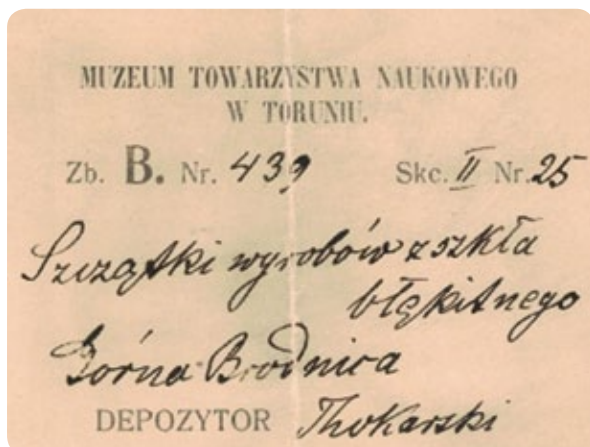 MUZEUM TOWARZYSTWA NAUKOWEGO
W TORUNIU.
Zb. B. Nr. 439 Skc. II Nr. 25
Szczątki wyrobów z szkła
błękitnego
Górna Brodnica
DEPOZYTOR Thokarski